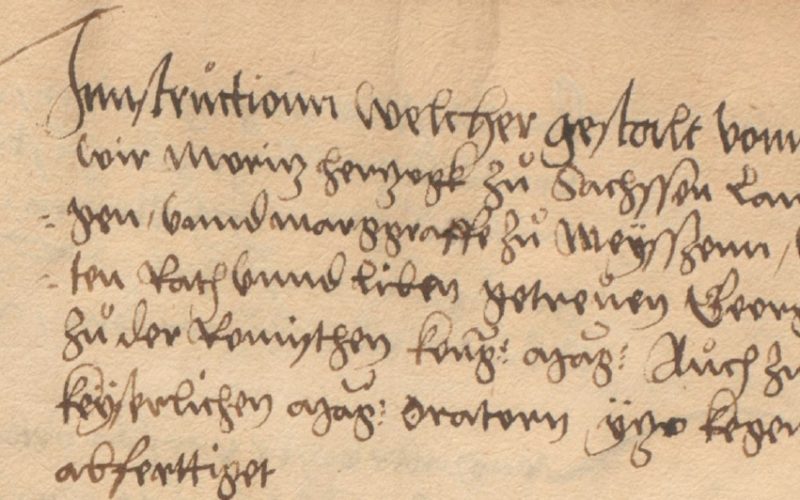 Innstrůctionn Welcher gestalt vonn
Wir Moritz hertzogk zů Sachssen Lan
gen, vnnd marggraffe zů Meÿssenn,
ten Rath vnnd liben getreůen Georg
zů der Romischen kon: Mag: Aůch zů
keÿserlichen Mag: oratorn ÿtzo kegen
abferttiget